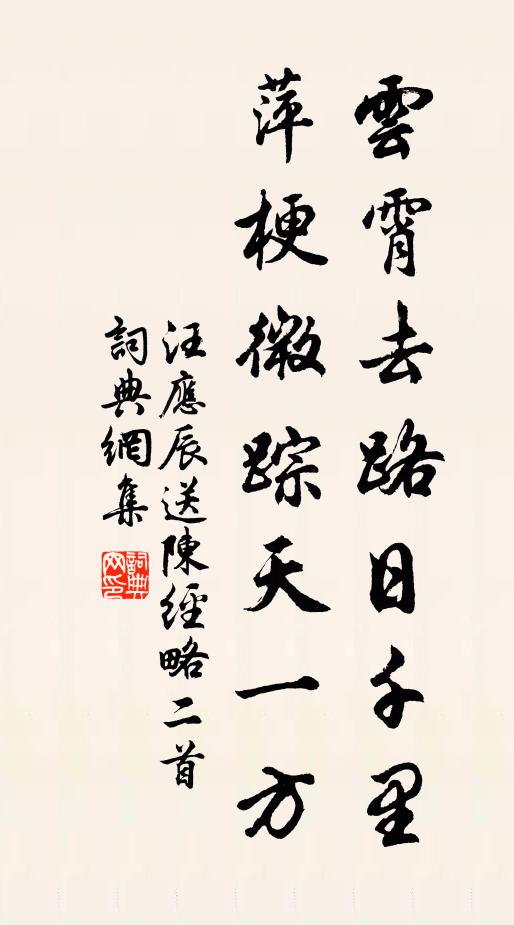 雲霄去路日千里
萍梗微踪天一方
汪應辰送陳經略二首
詞典網集
詞典
网印